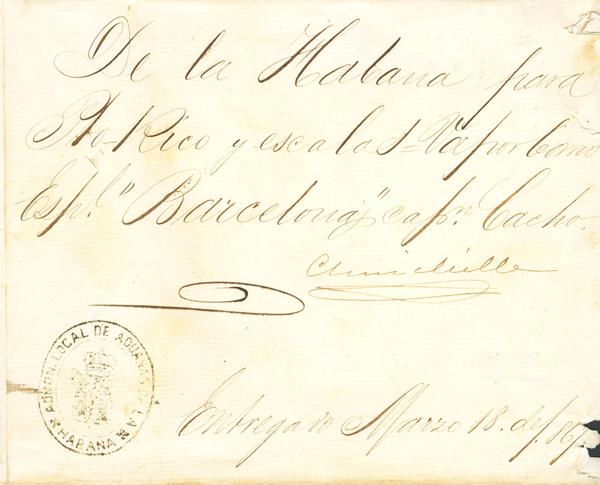 De la Habana para
Pto-Rico y escalas = Vapor Correo
Esp.l "Barcelona," cap.n Cacho.
ADMON. LOCAL DE ADUANAS DE LA
HABANA
Entregado Marzo 18. de